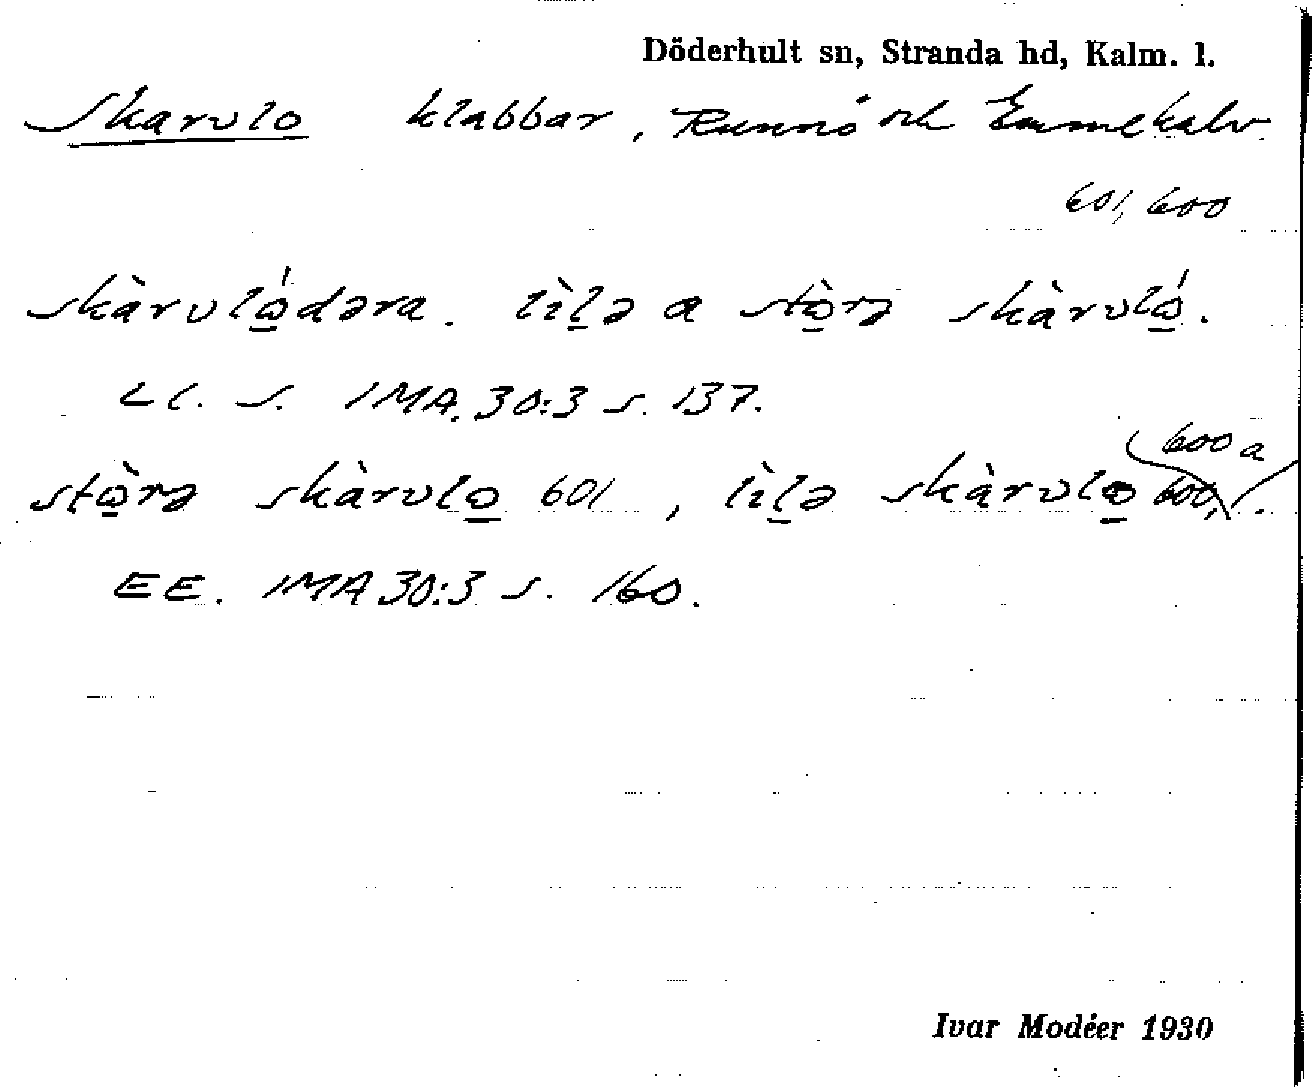 Döderhult sn, Stranda hd, Kalm. l.
Skarvlo klabbar, Runnö och Emmekalv.
601, 600
skàrvló̲dəra. lìl̲ə a stò̲rə skàrvló̲.
LC. S. IMA. 30:3 s. 137.
600 a
stò̲rə skàrvlo̲ 601, lìl̲ə skàrvlo̲ 600,.
EE. IMA 30:3 s. 160.
Ivar Modéer 1930